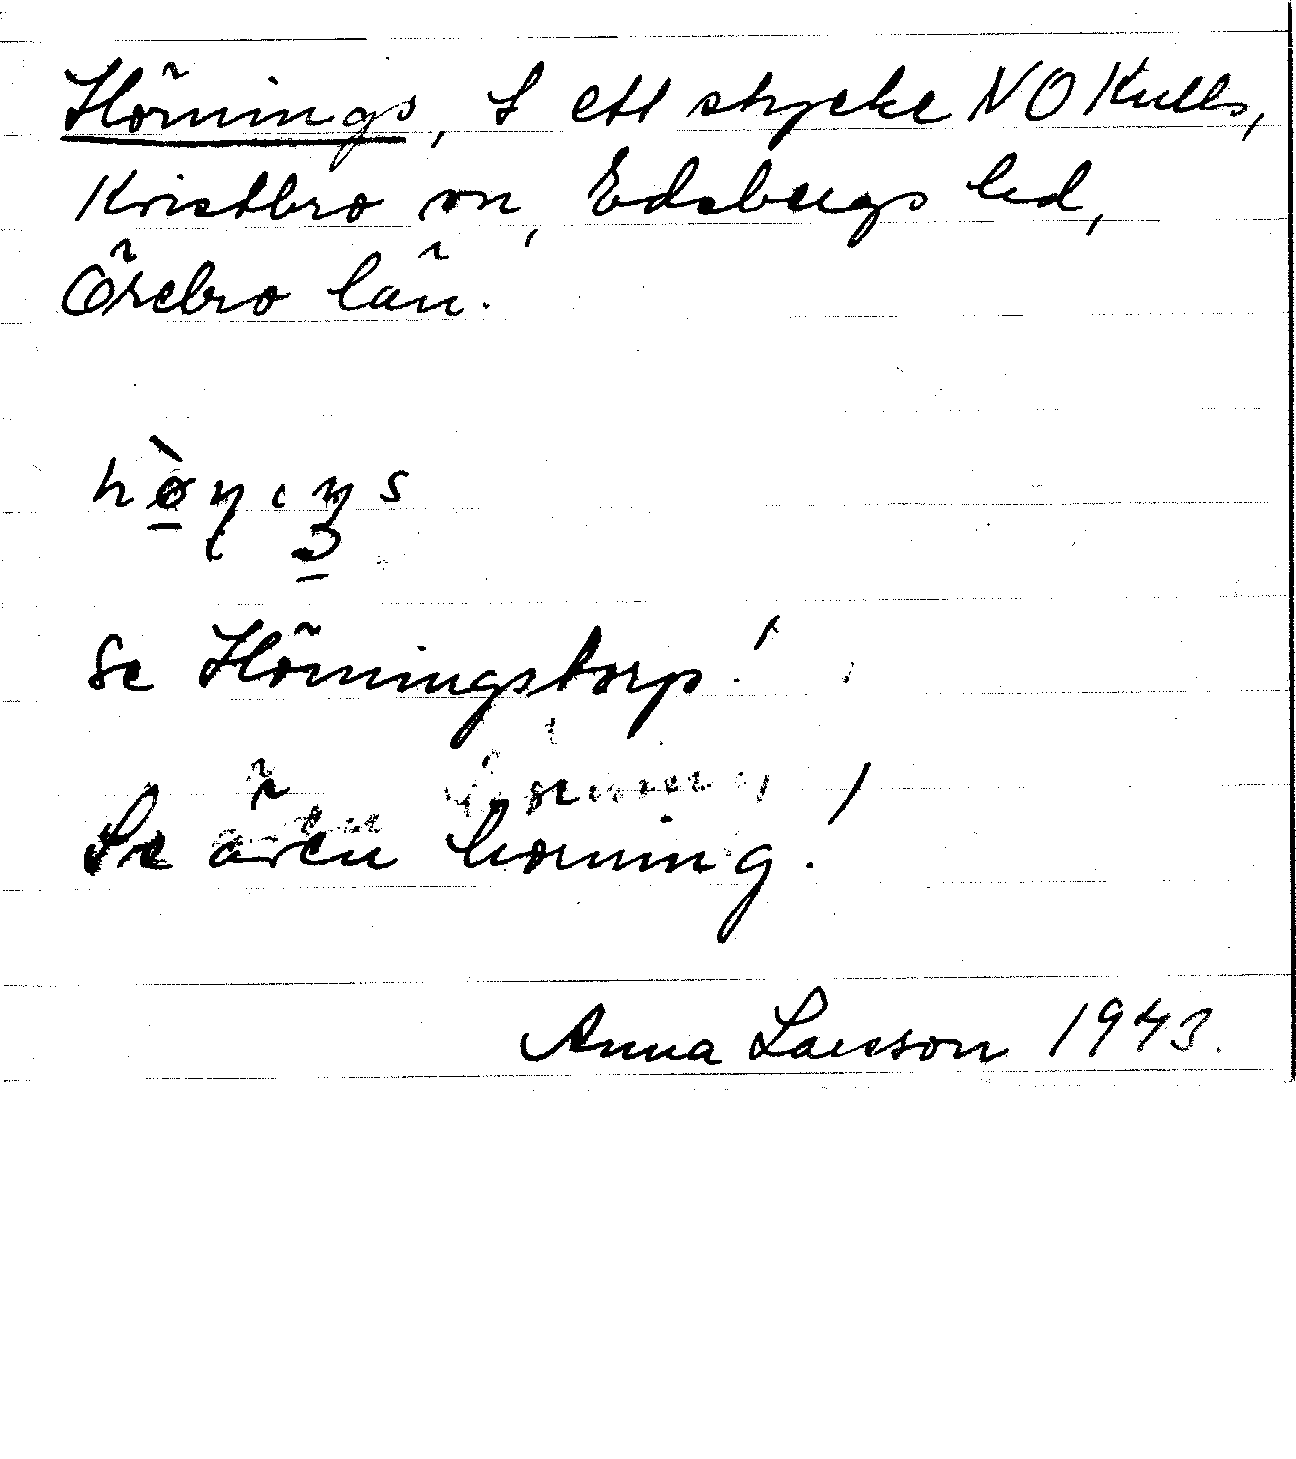 Hörnings, L ett stycke NO Kulls,
Knistbro sn, Edsbergs hd,
Örebro län.
Se Hörningstorp!
Se även horning!
Anna Larsson 1943.